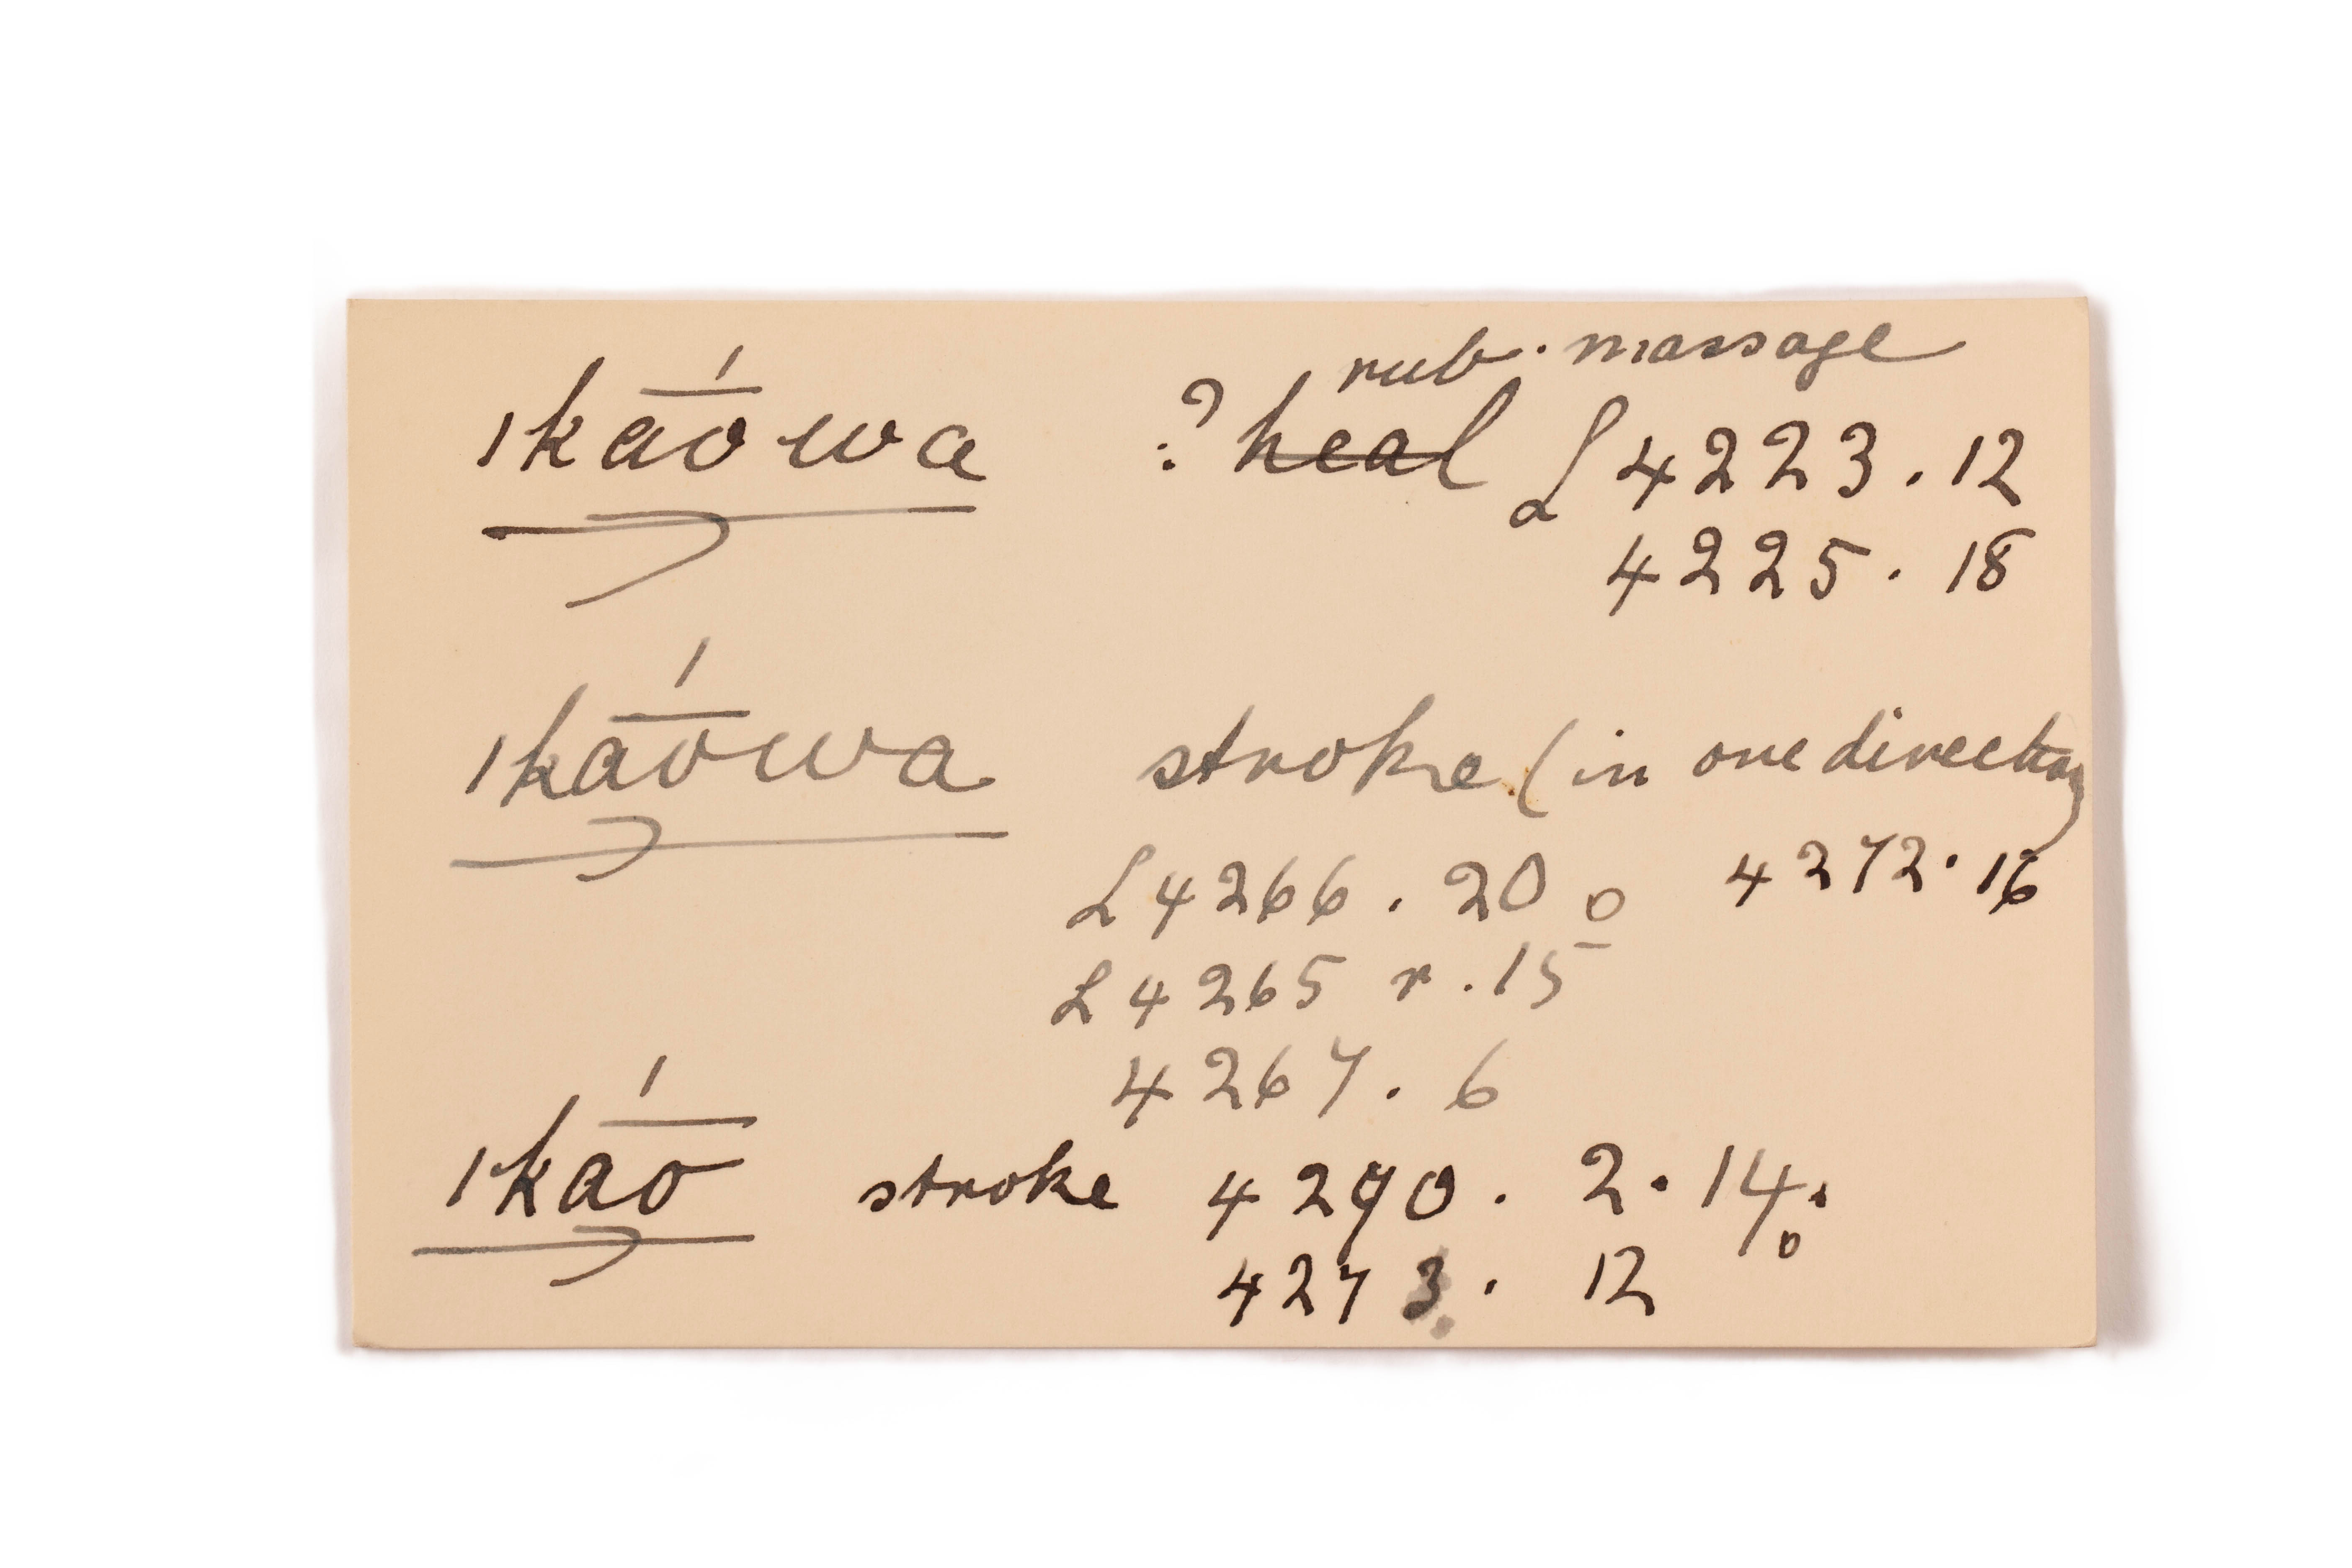 rub. massage
ǀkā́owa ? heal L 4223. 12
4225. 18
ǀkā́owa stroke (in one direction)
L 4266. 20 o 4272. 16
L 4265 r. 15
4267. 6
ǀkā́o stroke 4270. 2. 14.
o
4273. 12